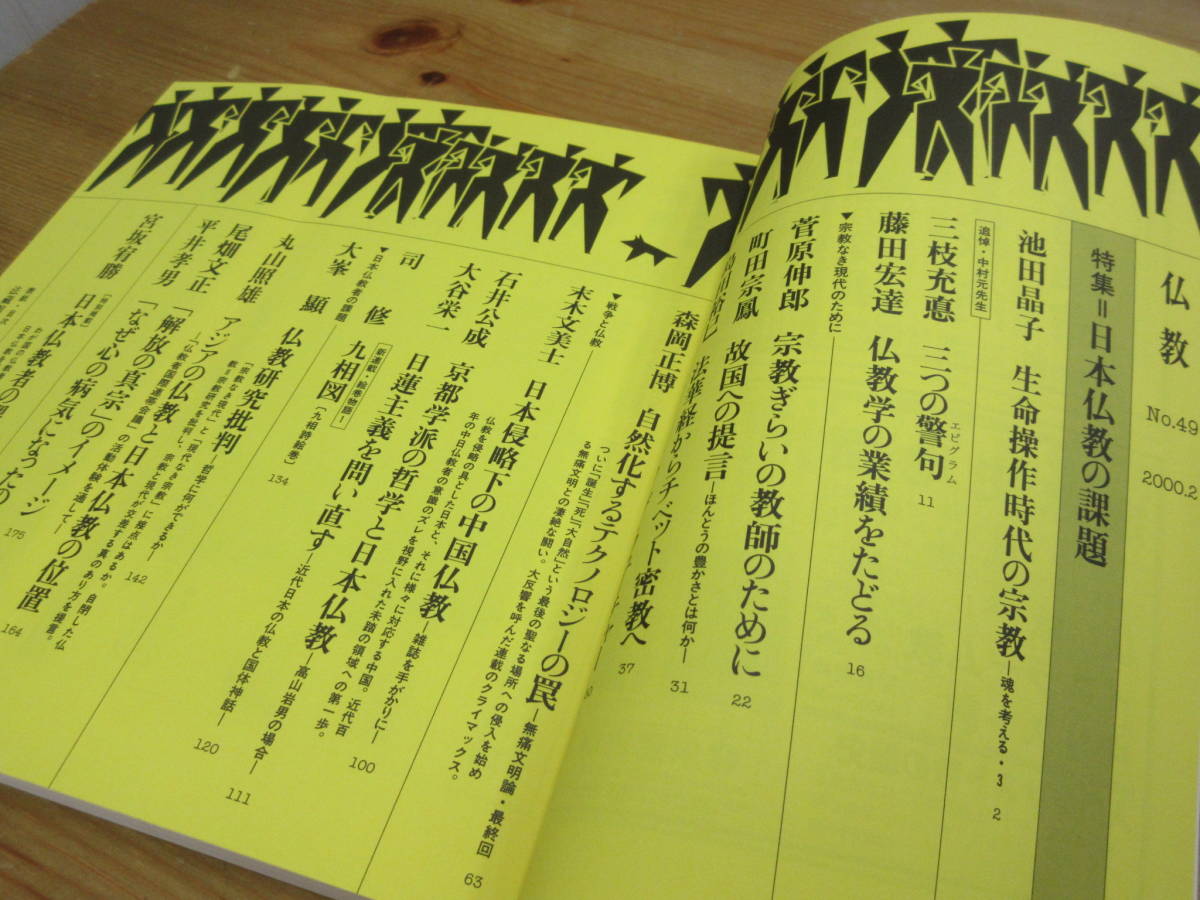 仏教
No.49
2000.2
特集=日本仏教の課題
池田晶子 生命操作時代の宗教―魂を考える・3 2
追悼・中村元先生
三枝充悳 三つの警句 11
エピグラム
藤田宏達 仏教学の業績をたどる 16
▼宗教なき現代のために
菅原伸郎 宗教ぎらいの教師のために 22
町田宗鳳 故国への提言―ほんとうの豊かさとは何か― 31
法華経からチベット密教へ 37
森岡正博 自然化するテクノロジーの罠―無痛文明論・最終回
ついに「誕生」「死」「大自然」という最後の聖なる場所への侵入を始め
る無痛文明との凄絶な闘い。大反響を呼んだ連載のクライマックス。
63
▼戦争と仏教
末木文美士 日本侵略下の中国仏教―雑誌を手がかりに―
仏教を侵略の具とした日本と、それに様々に対応する中国。近代百
年の中日仏教者の意識のズレを視野に入れた未踏の領域への第一歩。
100
石井公成 京都学派の哲学と日本仏教―高山岩男の場合―
111
大谷栄一 日蓮主義を問い直す―近代日本の仏教と国体神話―
120
新連載・絵巻物語・1
司修 九相図〔九相詩絵巻〕
134
▼日本仏教者の課題
大峯顯 仏教研究批判
「宗教なき現代」と「現代なき宗教」に接点はあるか。自閉した仏
教=宗教研究を批判し、宗教と現代が交差する真のあり方を提言。
142
丸山照雄 アジアの仏教と日本仏教の位置
―「仏教者国際連帯会議」の活動体験を通して―
164
尾畑文正 「解放の真宗」のイメージ
175
平井孝男 「なぜ心の病気になったの
宮坂宥勝 日本仏教